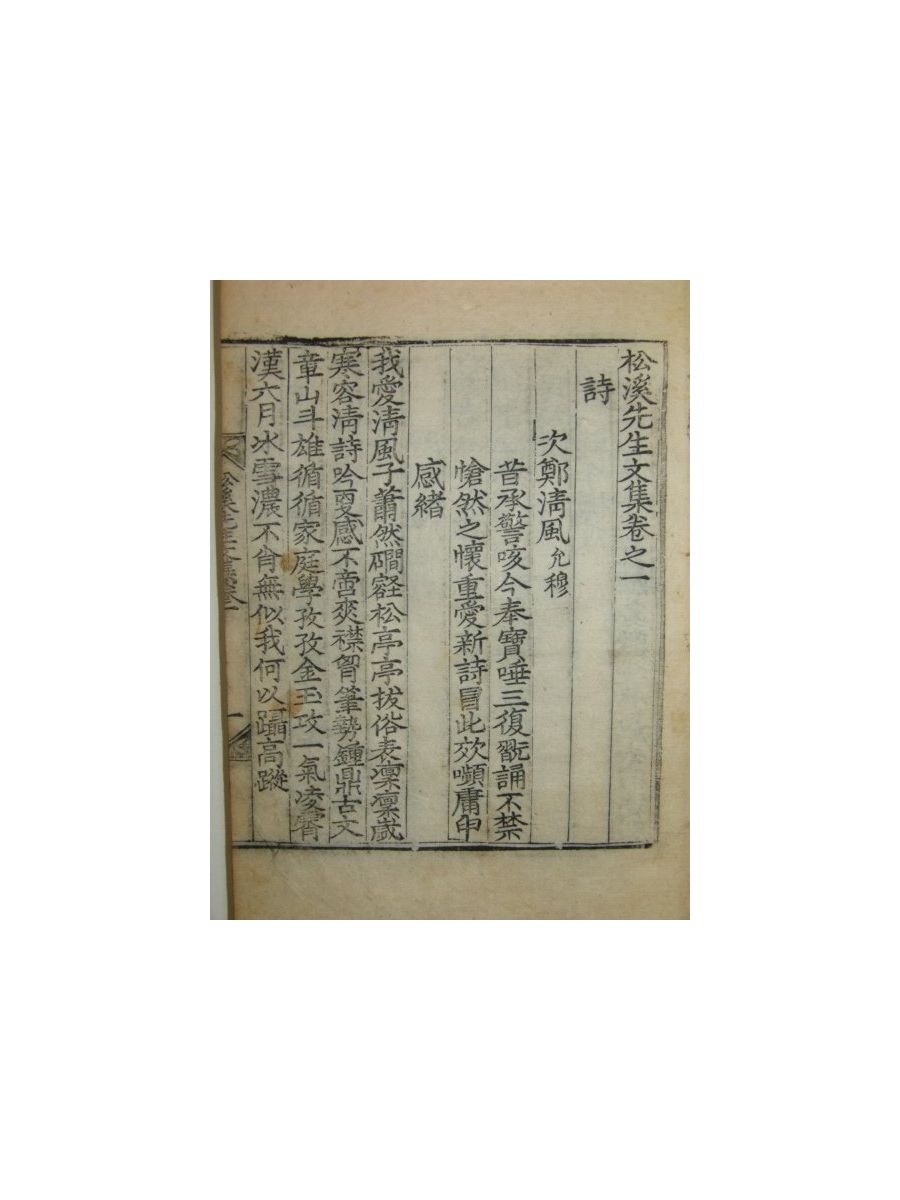 松溪先生文集卷之一
詩
次鄭淸風允穆
昔承警咳今奉寶唾三復翫誦不禁
愴然之懷重愛新詩冒此效嚬庸申
感緖
我愛淸風子蕭然磵壑松亭亭拔俗表凜凜歲
寒容淸詩吟更感不啻爽襟胷筆勢鍾鼎古文
章山斗雄循循家庭學孜孜金玉攻一氣凌霄
漢六月氷雪濃不肖無似我何以躡高蹤
松溪先生文集卷一
一